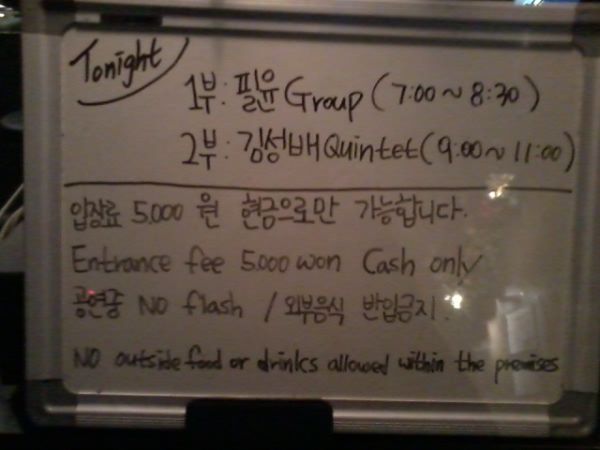 Tonight
1부: 필윤 Group (7:00~8:30)
2부: 김성배 Quintet (9:00~11:00)
입장료 5.000 원 현금으로만 가능합니다.
Entrance fee 5.000 won Cash only
공연중 NO flash / 외부음식 반입금지.
NO outside food or drinks allowed within the premises